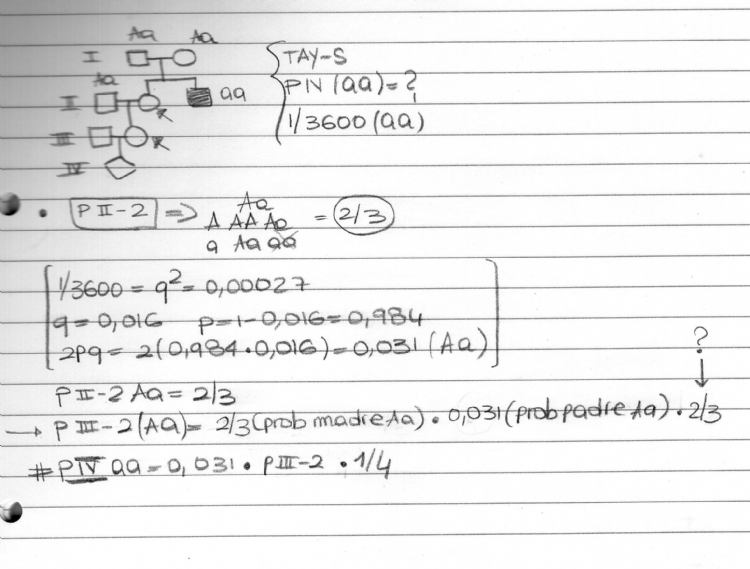 Aa Aa
I
Aa
II aa
III
IV
TAY-S
PIV (aa) = ?
1/3600 (aa)
• P II-2 => Aa
A AA Aa = 2/3
a Aa aa
1/3600 = q² = 0,00027
q = 0,016 p = 1-0,016 = 0,984
2pq = 2(0,984·0,016) = 0,031 (Aa)
?
P II-2 Aa = 2/3
→ P III-2 (AA) = 2/3 (prob madre Aa) · 0,031 (prob padre Aa) · 2/3
# PIV aa = 0,031 · P III-2 · 1/4